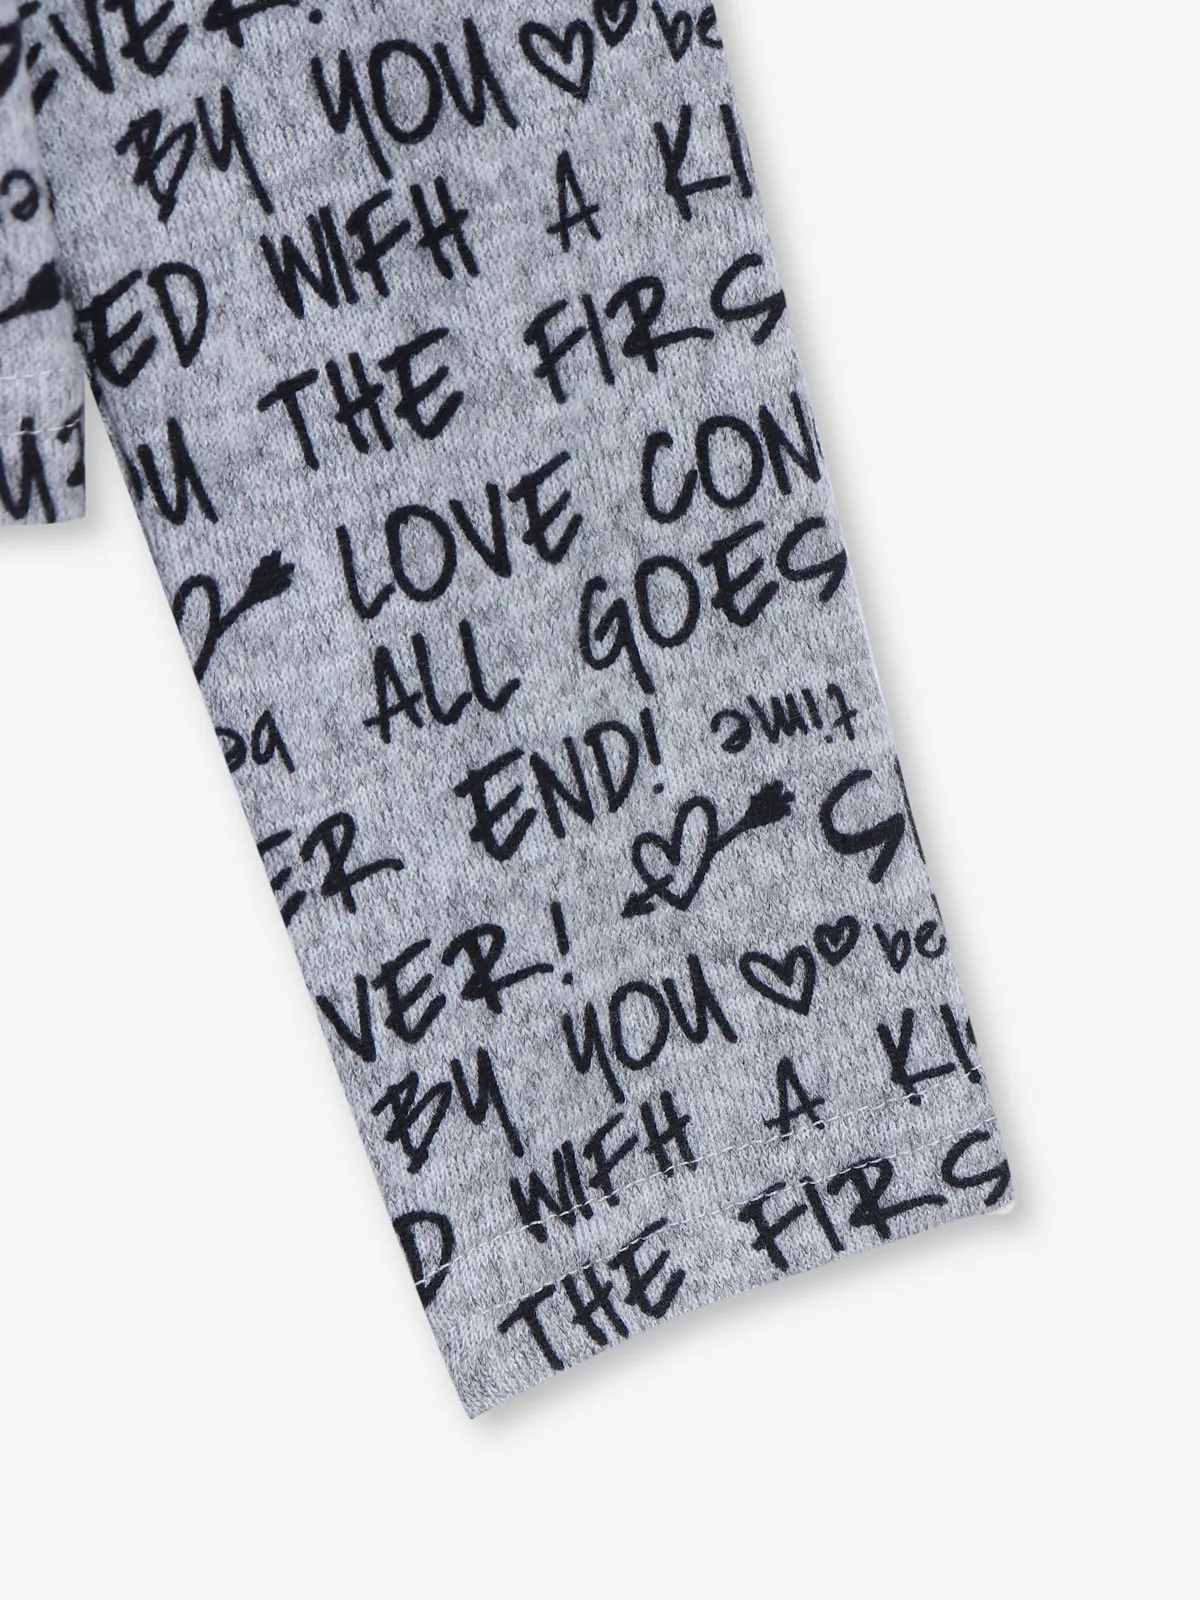 EVER!
BY YOU be
WIFH A KI
ED THE FIRS
OU LOVE CON
ALL GOES
be END! time
ER S
VER! be
BY YOU
WIFH A KI
D THE FIRS